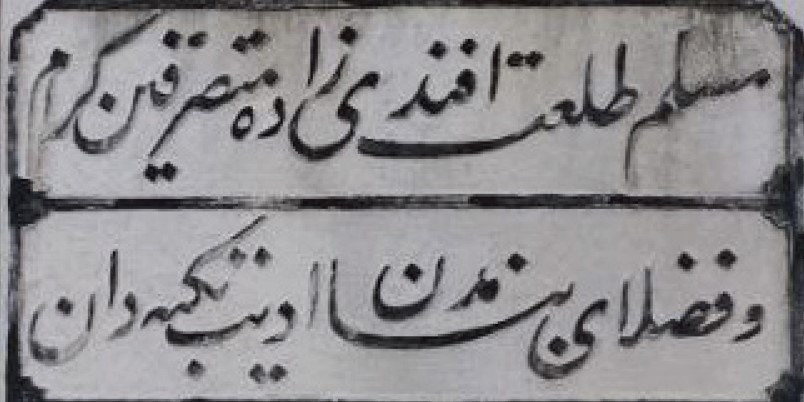 مسلم طلعت افندی زاده متصرفین کرام
و فضلای بنندن سا ادیب نکته دان